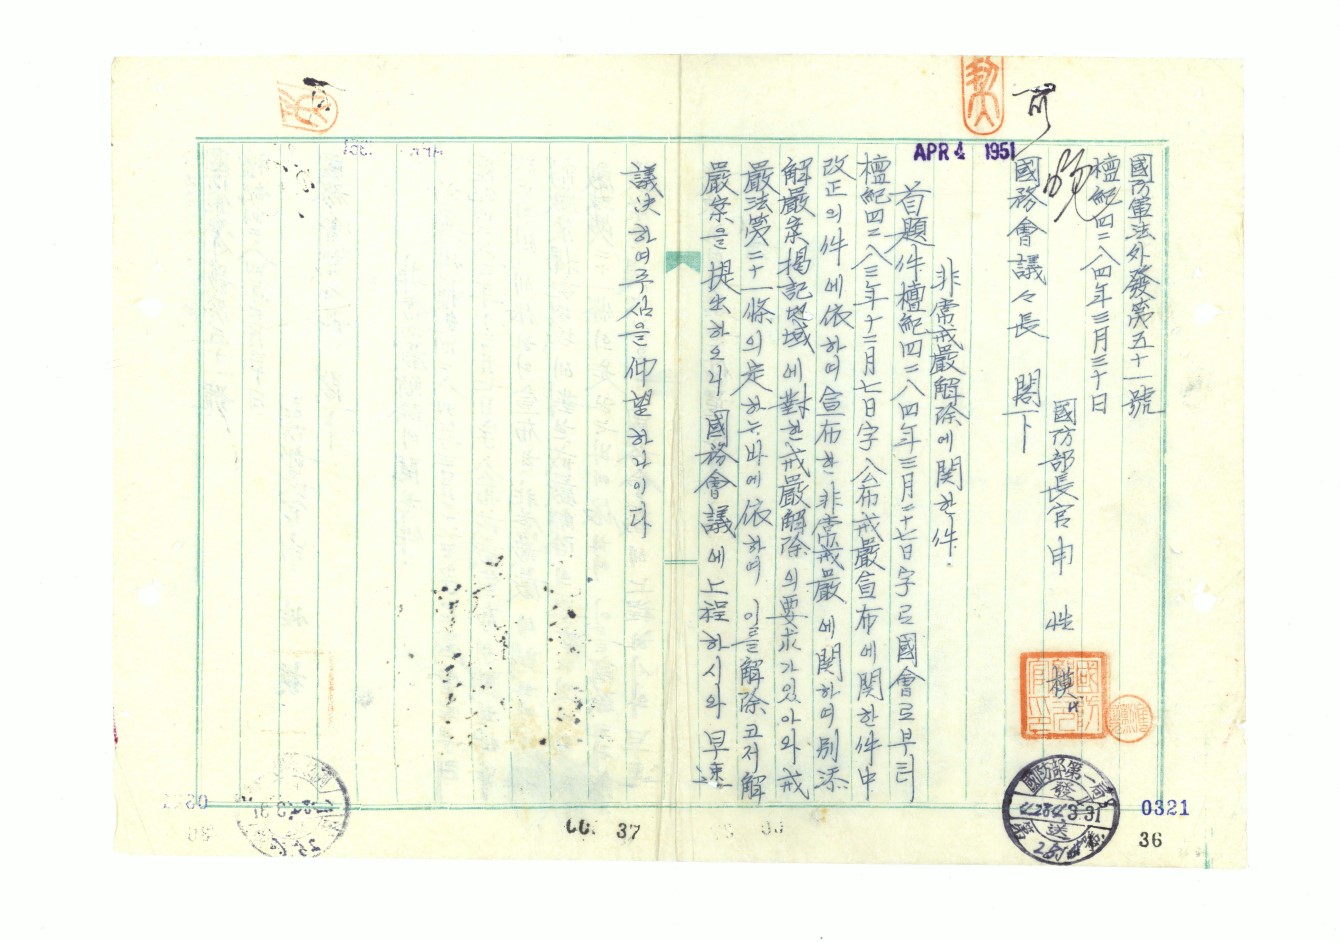 國防軍法外發第五十一號
檀紀四二八四年三月三十日
國防部長官 申 性 模
國務會議々長 閣下
可
APR 4 1951
非常戒嚴解除에関한件
首題件檀紀四二八四年三月二十七日字로國會로부터
檀紀四二八三年十二月七日字公布戒嚴宣布에関한件中
改正의件에依하여宣布한非常戒嚴에関하여別添
解嚴案揭記地域에對한戒嚴解除의要求가있아와戒
嚴法第二十一條의定하는바에依하여이를解除코저解
嚴案을提出하오니國務會議에上程하시와早速
議決하여주심을仰望하나이다
國防部第一局
發
4284 3 31
送
0321
36
37